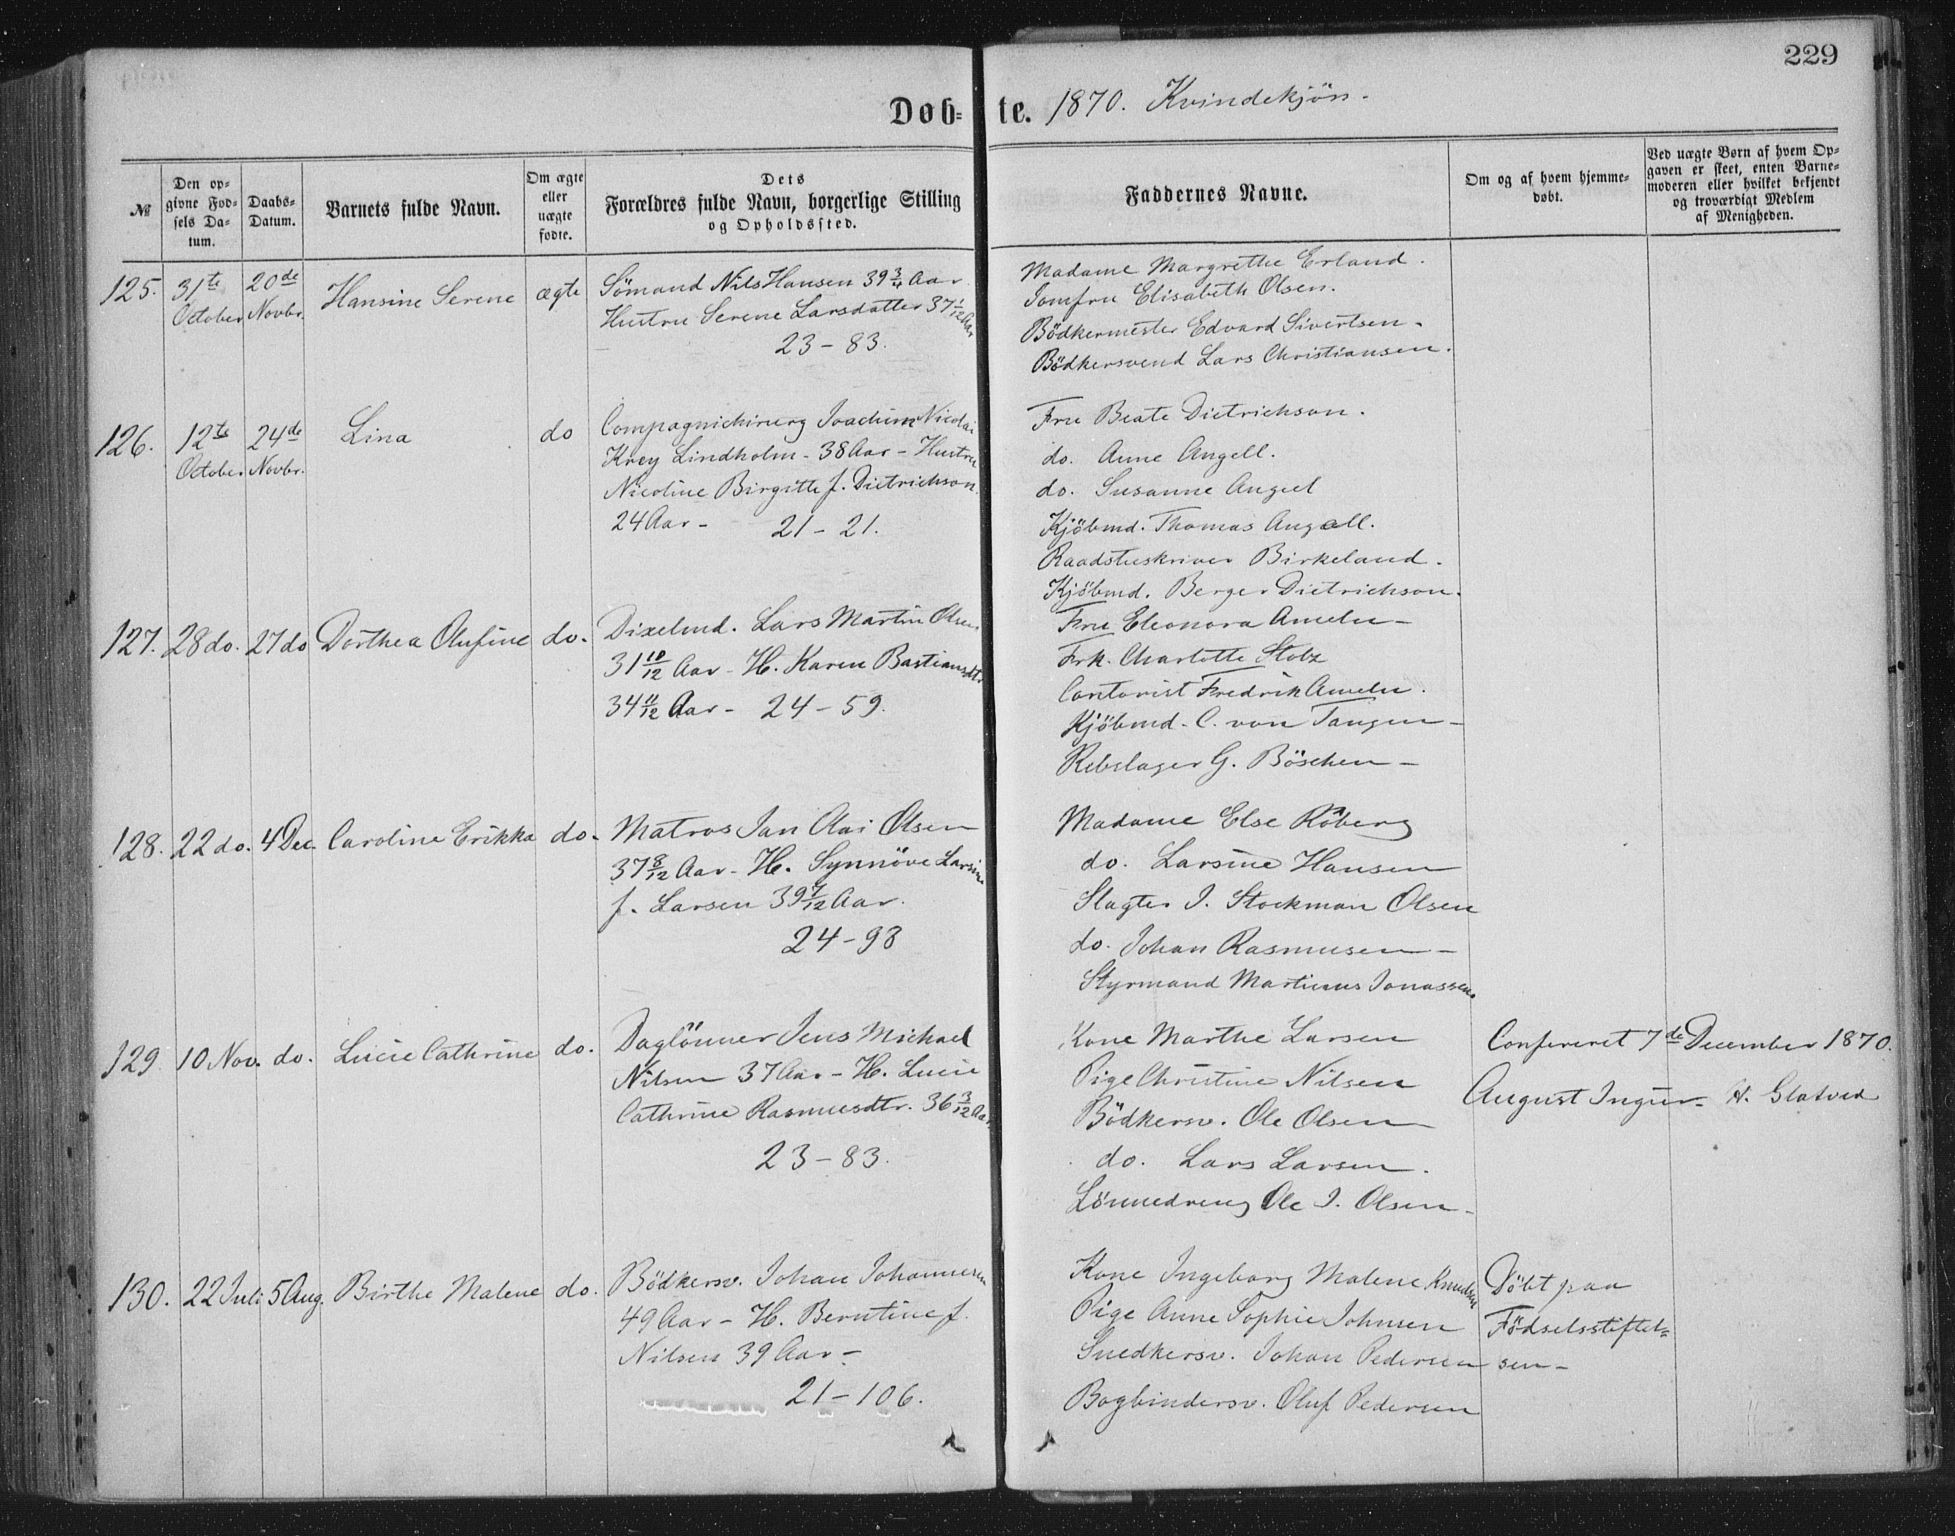 229
Døbte. 1870. Kvindekjön.
№
Den opgivne Fødsels Datum.
Daabs-Datum.
Barnets fulde Navn.
Om ægte eller uægte fødte.
Dets Forældres fulde Navn, borgerlige Stilling og Opholdssted.
Faddernes Navne.
Om og af hvem hjemmedøbt.
Ved uægte Børn af hvem Opgaven er skeet, enten Barnemoderen eller hvilket bekjendt og troværdigt Medlem af Menigheden.
125. 31te October 20de Novbr. Hansine Serene ægte
Sömand Nils Hansen 39 3/4 Aar
Hustru Serene Larsdatter 37 1/12 Aar
23-83.
Madame Margrethe Erland.
Jomfru Elisabeth Olsen.
Bödkermester Edvard Sivertsen.
Bödkersvend Lars Christiansen.
126. 12te October 24de Novbr. Lina do
Compagnichirurg Joachim Nicolai
Krey Lindholm - 38 Aar - Hustru
Nicoline Birgitte f. Dietrichson
24 Aar - 21-21.
Fru Beate Dietrichson.
do. Anne Angell.
do. Susanne Angell
Kjöbmd. Thomas Angell.
Raadstueskriver Birkeland.
Kjöbmd. Berger Dietrichson.
127. 28 do. 27 do Dorthea Olufine do.
Dixelmd. Lars Martin Olsen
31 10/12 Aar - H. Karen Bastiansdtr
34 11/12 Aar - 24-59.
Fru Eleonora Ameln -
Frk. Charlotte Stolz
Contorist Fredrik Ameln.
Kjöbmd. C. von Tangen -
Rebslager G. Böschen -
128. 22 do. 4 Dec. Caroline Erikka do.
Matros Jan Olai Olsen
37 8/12 Aar - H. Synnöve Larsine
f. Larsen 39 7/12 Aar.
24-98
Madame Else Röberg
do. Larsine Hansen
Slagter J. Stockman Olsen
do. Johan Rasmusen -
Styrmand Martinus Jonassen.
129. 10 Nov. do. Lucie Cathrine do.
Daglönner Jens Michael
Nilsen 37 Aar - H. Lucie
Cathrine Rasmusdtr. 36 3/12 Aar
23-83.
Kone Marthe Larsen
Pige Christine Nilsen
Bödkersv. Ole Olsen
do. Lars Larsen.
Lönnedreng Ole J. Olsen -
Confereret 7de December 1870.
August Ingier. H. Glatved
130. 22 Juli 5 Aug. Birthe Malene do.
Bödkersv. Johan Johannesen
49 Aar - H. Berntine f.
Nilsen 39 Aar -
21-106.
Kone Ingeborg Malene Knudsen
Pige Anne Sophie Johnsen
Snedkersv. Johan Pedersen
Bogbindersv. Oluf Pedersen
Döbt paa
Födselsstiftel-
sen -